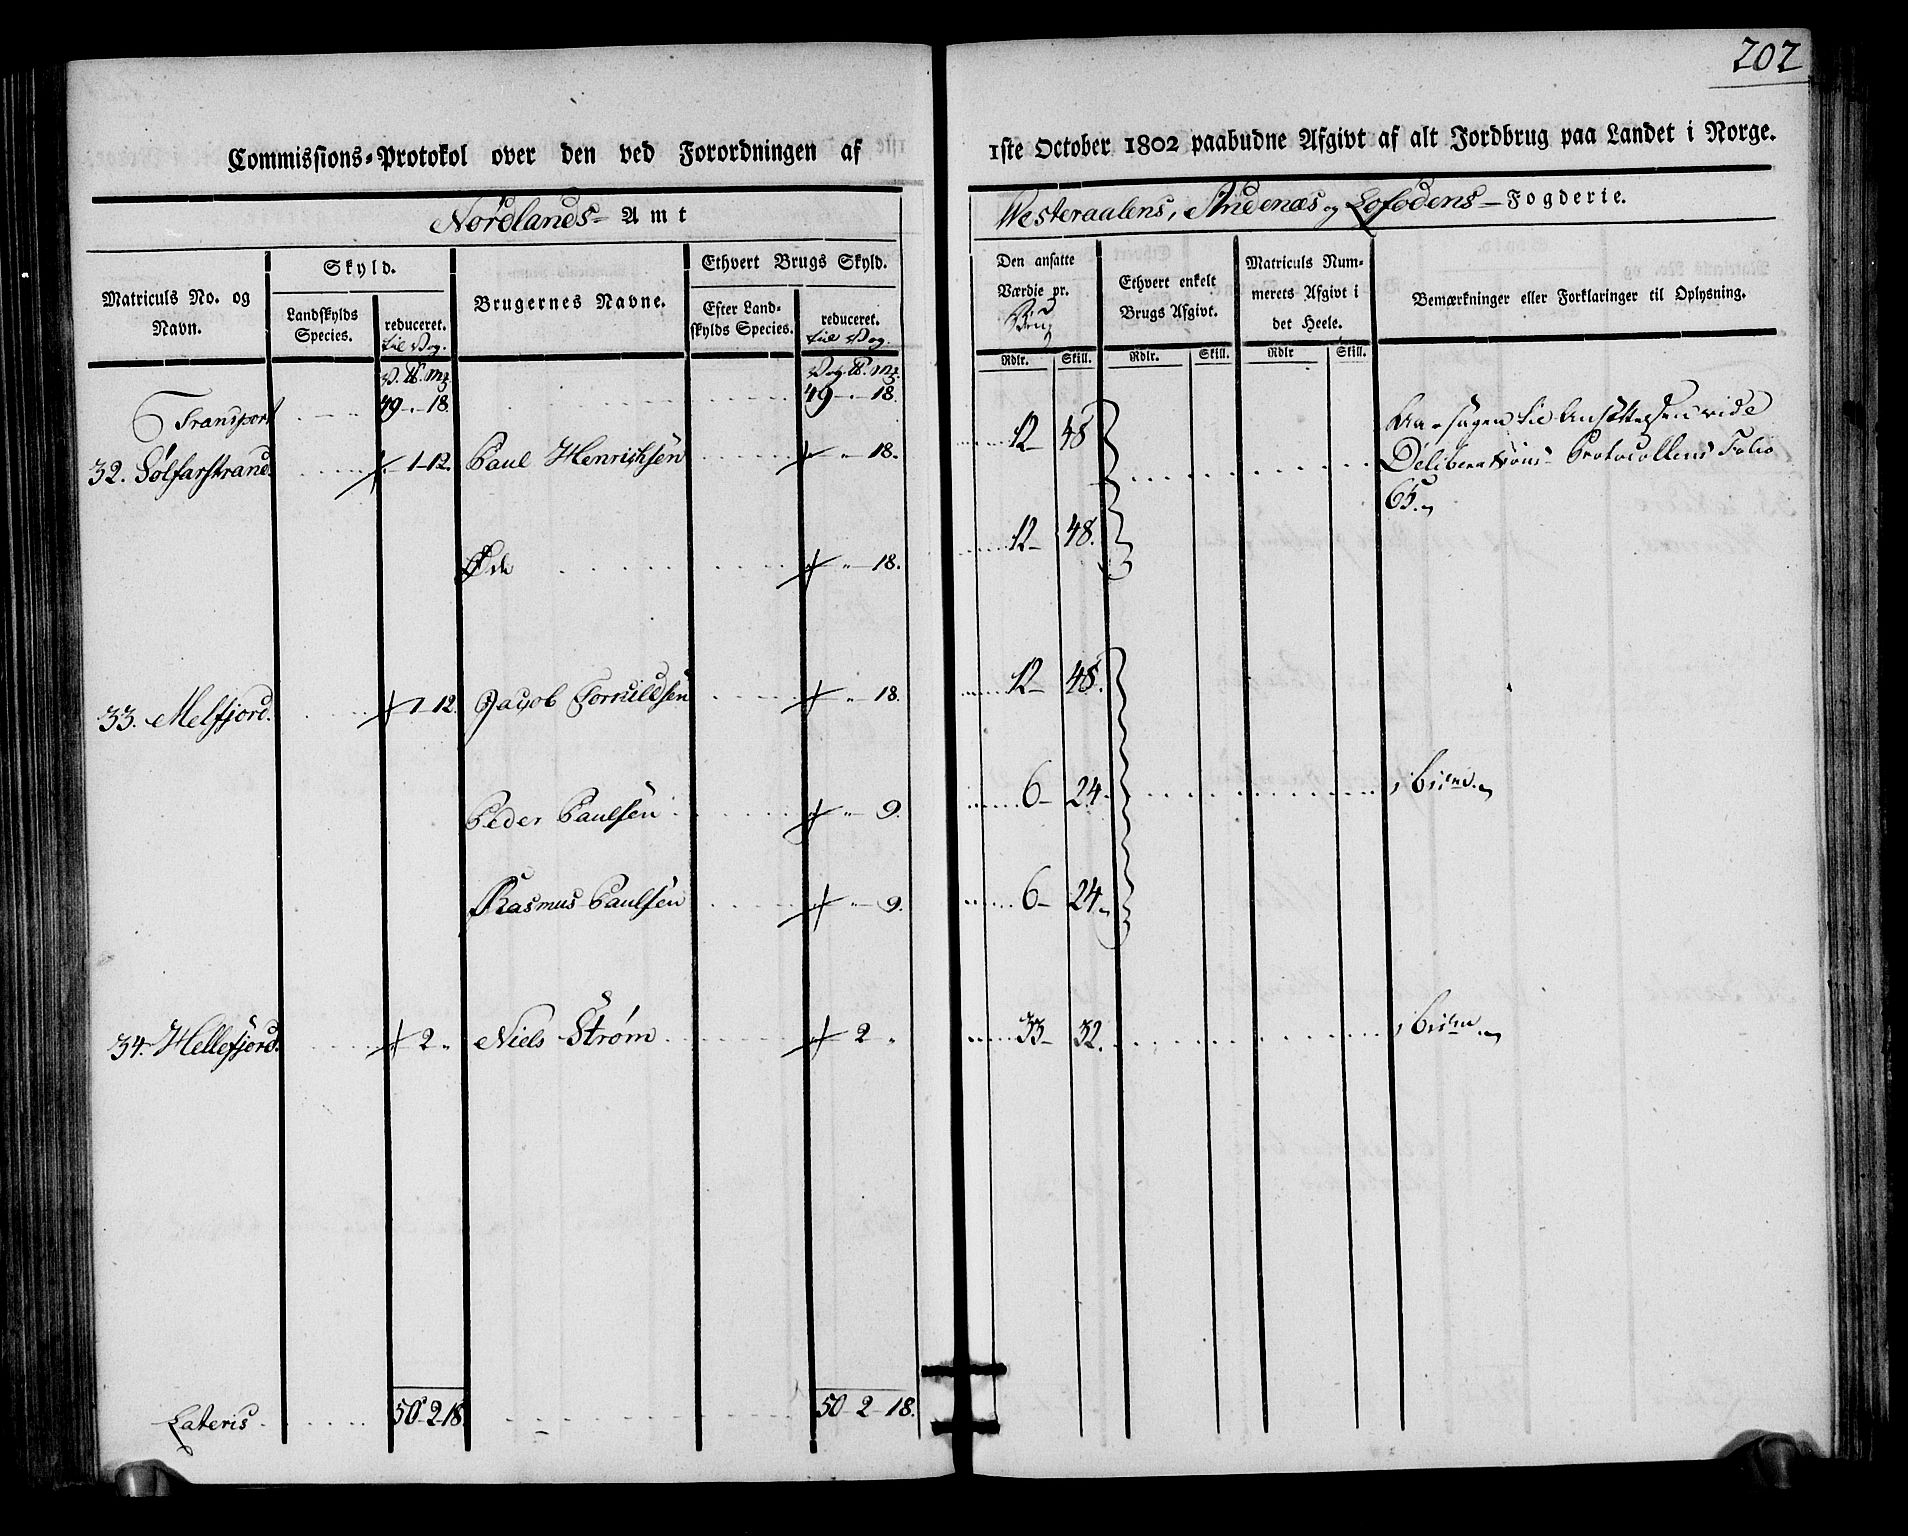 202
Commissions-Protokol over den ved Forordningen af 1ste October 1802 paabudne Afgivt af alt Jordbrug paa Landet i Norge.
Nordlands- Amt
Westeraalens, Andenæs og Lofodens- Fogderie.
Matriculs No. og Navn.
Skyld.
Landskylds Species.
reduceret.
til Vog.
Brugernes Navne.
Ethvert Brugs Skyld.
Efter Landskylds Species.
reduceret.
til Vog.
Den ansatte Værdie pr. Brug
Rdlr. Skill.
Ethvert enkelt Brugs Afgivt.
Rdlr. Skill.
Matriculs Nummerets Afgivt i det Heele.
Rdlr Skill.
Bemærkninger eller Forklaringer til Oplysning.
V. ℔. mg. Vog. ℔. mg.
Transport 49 - . - 18. 49 - . - 18.
32. Sølfarstrand. - 1 - 12. Paul Henrichsen - " - 18. 12 - 48
Aarsagen til Ansættelsen vide
Deliberations Protocollens Folio
65.
Øde - " - 18. 12 - 48.
33. Melfjord. - 1 - 12. Jacob Torrildsen - " - 18. 12 - 48.
Peder Paulsen - " - 9. 6 - 24. ibiend.
Rasmus Paulsen - " - 9. 6 - 24.
34. Hellefjord. 2 " Niels Strøm 2 " 33 - 32. ibiend.
Lateris 50 - 2 - 18. 50 - 2 - 18.